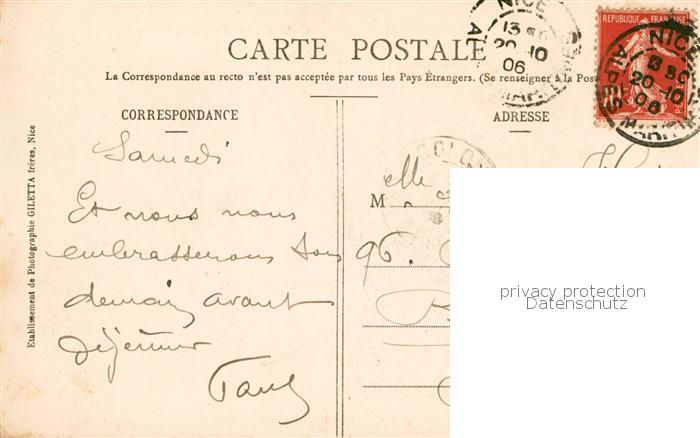 CARTE POSTALE
La Correspondance au recto n'est pas acceptée par tous les Pays Étrangers. (Se renseigner à la Pos
CORRESPONDANCE
ADRESSE
Samedi
Et nous nous
embrasserons tous
demain avant
déjeuner
Paul
Etablissement de Photographie GILETTA frères, Nice
M elle
96.
NICE
13
20-10
06
REPUBLIQUE FRANÇAISE
NICE
20-10
06
ALPES MARITIMES
privacy protection
Datenschutz